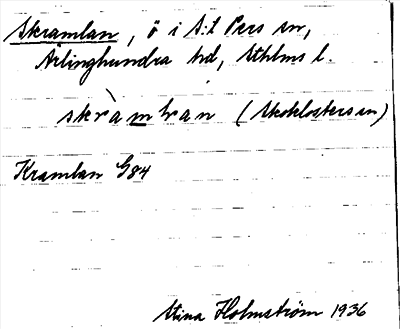 Skramlan, ö i S:t Pers sn,
Ärlinghundra hd, Sthlms l.
skràmḷan (Skoklosters sn)
Kramlan G84
Stina Holmström 1936